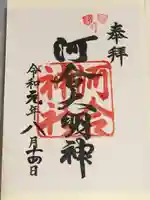 奉拝
河合大明神
河合神社
令和元年八月十四日